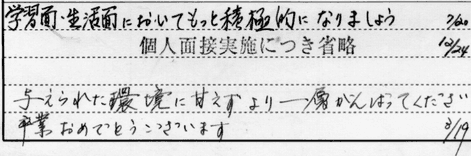 学習面・生活面においてもっと積極的になりましょう 7/20
個人面接実施につき省略 12/24
与えられた環境に甘えずより一層がんばってください
卒業おめでとうございます 3/19